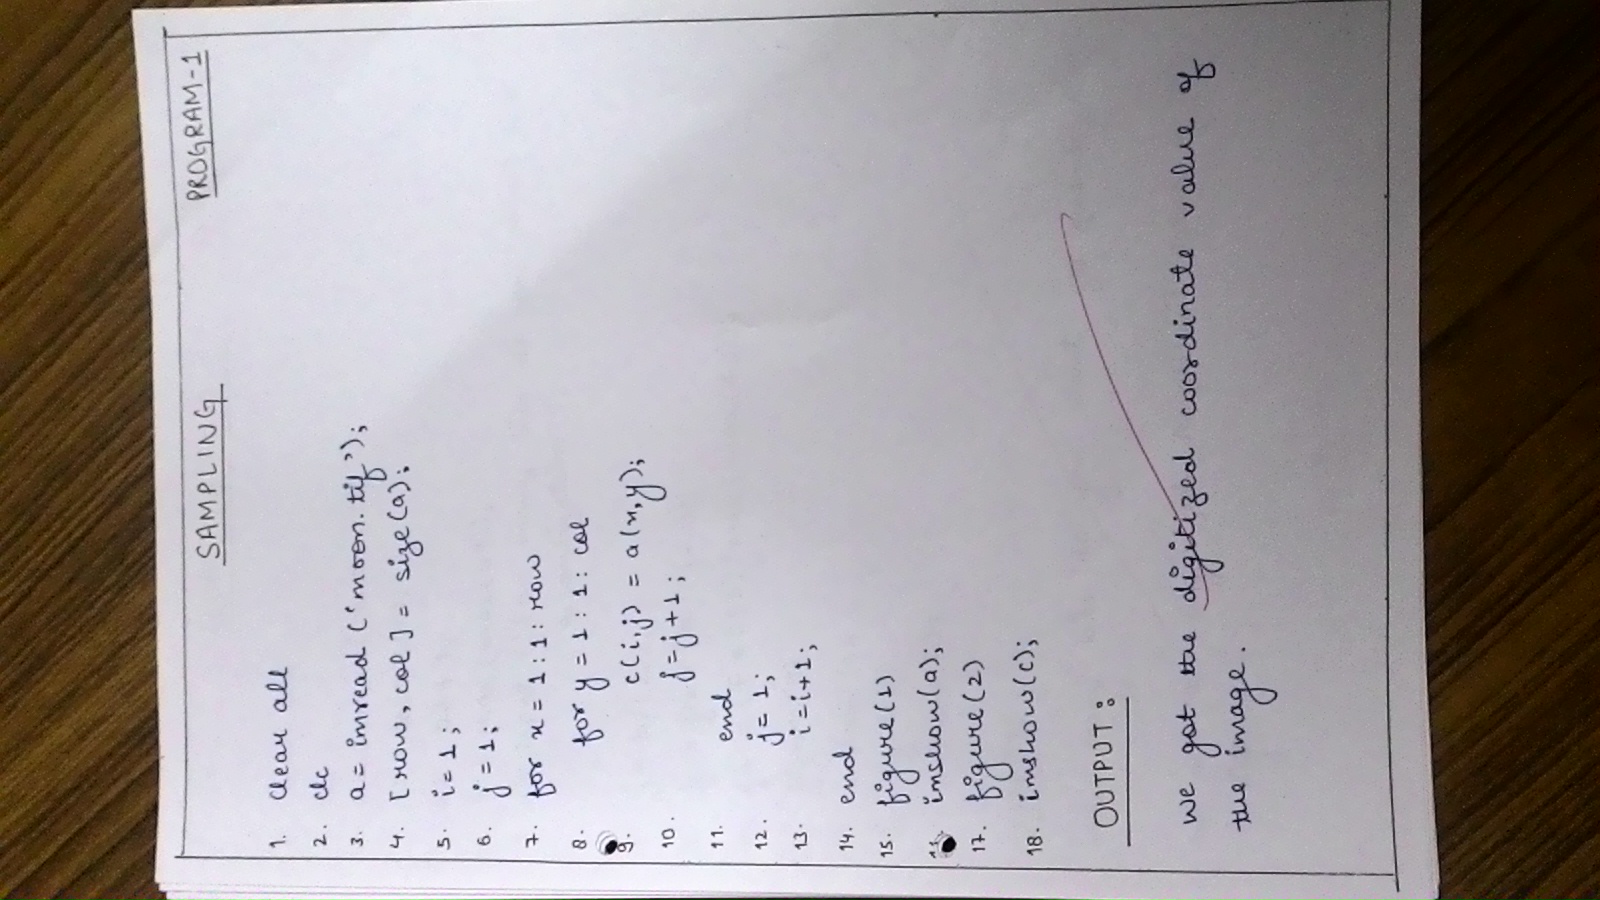 SAMPLING
PROGRAM-1
1. clear all
2. clc
3. a = imread ('moon.tif');
4. [row, col] = size(a);
5. i = 1;
6. j = 1;
7. for x = 1:1: row
8. for y = 1:1: col
9. c(i,j) = a(x,y);
10. j=j+1;
11. end
12. j= 1;
13. i=i+1;
14. end
15. figure(1)
imshow(a);
17. figure(2)
18. imshow(c);
OUTPUT :
We got the digitized coordinate value of
the image.